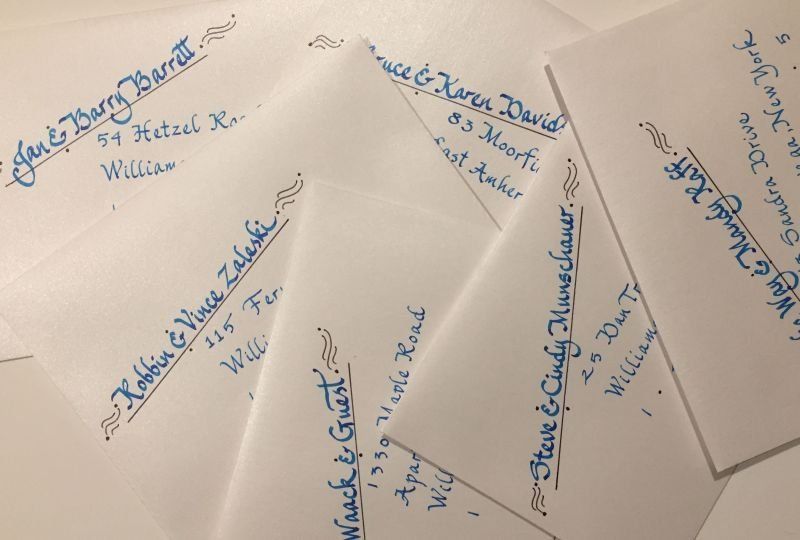 Jan & Barry Barrett
54 Hetzel
William
& Karen David
83 Moorfi
East Amher
Robbin & Vince Zaleski
115 Fer
Willi
Waack & Guest
1330 Maple Road
Apar
Will
1
Steve & Cindy Munschauer
25 Dan T
William
1
Way & Mandy Raff
Sandra Drive
New York
5